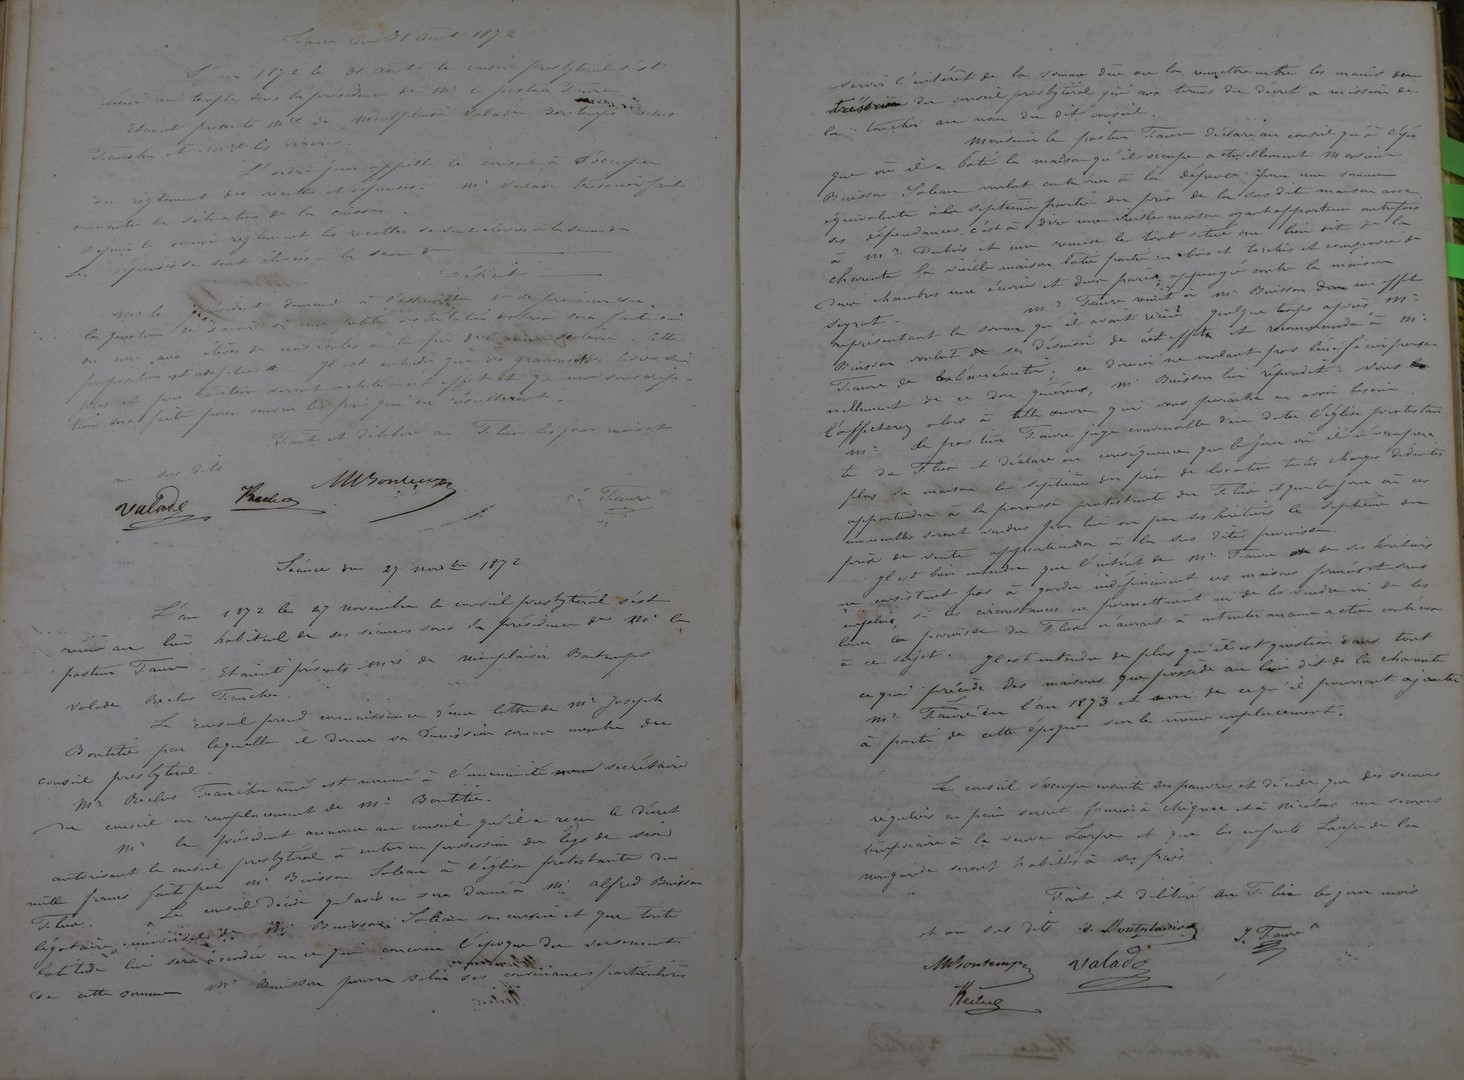 Séance du 31 Août 1872
L'an 1872 le 31 août le conseil presbytéral s'est
réuni au temple sous la présidence de Mr le pasteur Faure
Etaient présents Mrs de Montplaisir Valade Bontemps Reclus
Faucher et
L'ordre jour appelle le conseil à s'occuper
du règlement des recettes et dépenses. Mr Valade trésorier fait
connaître la situation de la caisse.
Depuis le dernier règlement les recettes se sont élevées à la somme de
Les dépenses se sont élevées à la somme de
Déficit
Mr le président demande à l'assemblée de se prononcer sur
la question de savoir si une petite distribution de prix sera faite oui
ou non aux élèves de nos écoles à la fin de l'année scolaire. Cette
proposition est adoptée. Il est entendu que des
prix et seront achetés à cet effet et qu'une souscrip-
tion sera faite pour couvrir les frais qui en résulteront.
Fait et délibéré au Fleix les jour mois et
an sus dits
Valade Reclus MBontemps J. Faure
Séance du 27 novbre 1872
L'an 1872 le 27 novembre le conseil presbytéral s'est
réuni au lieu habituel de ses séances sous la présidence de Mr le
pasteur Faure. Etaient présents Mrs de Montplaisir Bontemps
Valade Reclus Faucher
Le conseil prend connaissance d'une lettre de Mr Joseph
Boutitié par laquelle il donne sa démission comme membre du
conseil presbytéral.
Mr Reclus Faucher ainé est nommé à l'unanimité secrétaire
du conseil en remplacement de Mr Boutitié.
Mr le président annonce au conseil qu'il a reçu le décret
autorisant le conseil presbytéral à entrer en possession du legs de
mille francs fait par Mr Buisson Soleau à l'église protestante du
Fleix. Le conseil décide qu'avis en sera donné à Mr Alfred Buisson
légataire universel de Mr Buisson Soleau son cousin et que toute
latitude lui sera accordée en ce qui concerne l'époque du versement
de cette somme Mr Buisson pourra selon ses convenances particulières
servir l'intérêt de la somme due ou la remettre entre les mains du
trésorier du conseil presbytéral qui aux termes du décret a mission de
la toucher au nom du dit conseil.
Monsieur le pasteur Faure déclare au conseil qu'à l'épo
que où il a bâti la maison qu'il occupe actuellement Monsieur
Buisson Soleau voulut contribuer à la dépense pour une somme
équivalente à la septième partie du prix de la susdite maison avec
ses dépendances, c'est à dire une vieille maison ayant appartenu autrefois
à Mr Dubois et une remise le tout situé au lieu dit de la
charente la vieille maison bâtie partie en bois et torchis et composée de
deux chambres une écurie et d'un parc appuyé contre la maison
Mr Faure remit à Mr Buisson un effet
représentant la somme qu'il avait reçue quelque temps après Mr
Buisson voulut se désaisir de cet effet et recommanda à Mr
Faure de l'anéantir. ce dernier ne voulant pas bénéficier person
nellement de ce don généreux, Mr Buisson lui répondit: Vous
l'affecterez alors à telle œuvre qui vous paraîtra en avoir besoin.
Mr le pasteur Faure juge convenable d'en doter l'église protestan
te du Fleix et déclare en conséquence que le jour où il n'occupera
plus sa maison le septième du prix de location toutes charges déduites
appartiendra à la paroisse protestante du Fleix et que le jour où ces
immeubles seront vendus par lui ou par ses héritiers le septième du
prix de vente appartiendra à la sus dite paroisse.
Il est bien entendu que l'intérêt de Mr Faure et de ses héritiers
ne consistant pas à garder indéfiniment ces maisons fermées et sans
emploi, si les circonstances ne permettaient ni de les vendre ni de les
louer la paroisse du Fleix n'aurait à intenter aucune action contre eux
à ce sujet. Il est entendu de plus qu'il est question dans tout
ce qui précède des maisons que possède au lieu dit de la charente
Mr Faure en l'an 1873 et non de ce qu'il pourrait ajouter
à partir de cette époque sur le même emplacement.
Le conseil s'occupe ensuite des pauvres et décide que des secours
réguliers en pain seront fournis à et à Nicolas un secours
temporaire à la veuve Laroque et que les enfants de la
seront habillés à ses frais
Fait et délibéré au Fleix les jour mois
et an sus dits de Montplaisir J. Faure
MBontemps Valade
Reclus